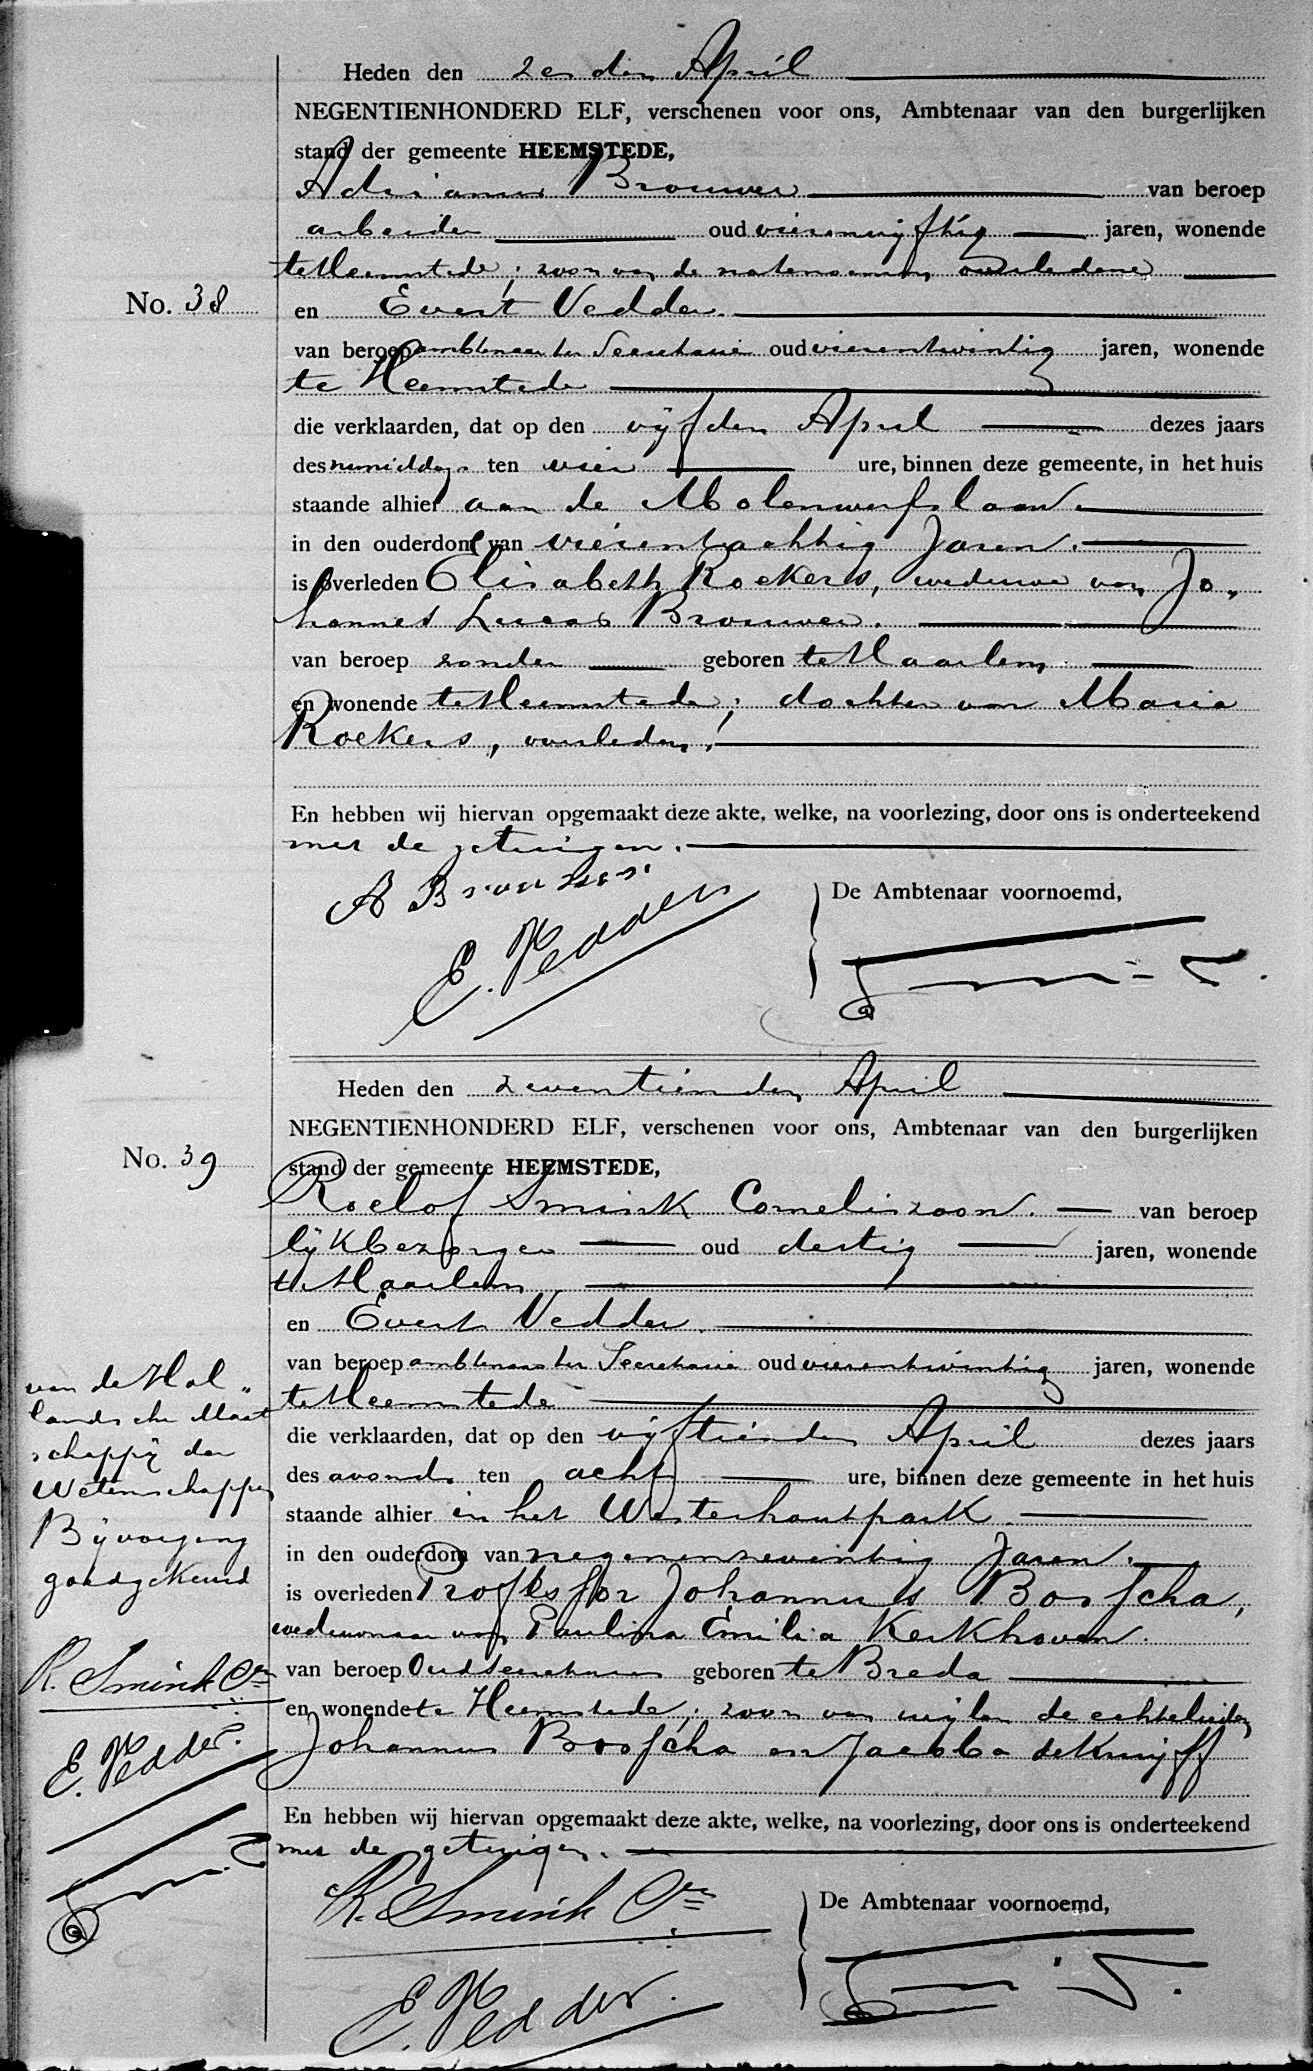 Heden den zesden April
NEGENTIENHONDERD ELF, verschenen voor ons, Ambtenaar van den burgerlijken
stand der gemeente HEEMSTEDE,
Adrianus Brouwer van beroep
arbeider oud vierenvijftig jaren, wonende
te Heemstede; zoon van de natenoemen overledene
No. 38
en Evert Vedder.
van beroep ambtenaar ter Secretarie oud vierentwintig jaren, wonende
te Heemstede
die verklaarden, dat op den vijfden April dezes jaars
des namiddags ten vier ure, binnen deze gemeente, in het huis
staande alhier aan de Molenwerfslaan.
in den ouderdom van vierentachtig Jaren.
is overleden Elisabeth Roekers, weduwe van Jo„
hannes Lucas Brouwer.
van beroep zonder geboren te Haarlem
en wonende te Heemstede; dochter van Maria
Roekers, overleden.
En hebben wij hiervan opgemaakt deze akte, welke, na voorlezing, door ons is onderteekend
met de getuigen.
A Brouwer.
E. Vedder
De Ambtenaar voornoemd,
Heden den zeventienden April
NEGENTIENHONDERD ELF, verschenen voor ons, Ambtenaar van den burgerlijken
No. 39
stand der gemeente HEEMSTEDE,
Roelof Smink Corneliszoon. van beroep
lijkbezorger oud dertig jaren, wonende
te Haarlem
en Evert Vedder.
van beroep ambtenaar ter Secretarie oud vierentwintig jaren, wonende
te Heemstede
die verklaarden, dat op den vijftienden April dezes jaars
des avonds ten acht ure, binnen deze gemeente in het huis
staande alhier in het Westerhoutpark.
in den ouderdom van negenenzeventig Jaren.
is overleden Professor Johannes Bosscha,
weduwnaar van Paulina Emilia Kerkhoven.
van beroep Oudsecretaris geboren te Breda
en wonende te Heemstede; zoon van wijlen de echtelieden
Johannes Bosscha en Jacoba de Kruyff
En hebben wij hiervan opgemaakt deze akte, welke, na voorlezing, door ons is onderteekend
met de getuigen.
R. Smink Czn
E. Vedder.
De Ambtenaar voornoemd,
van de Hol„
landsche Maat
schappij der
Wetenschappen
Bijvoeging
goedgekeurd
R. Smink Czn
E. Vedder.